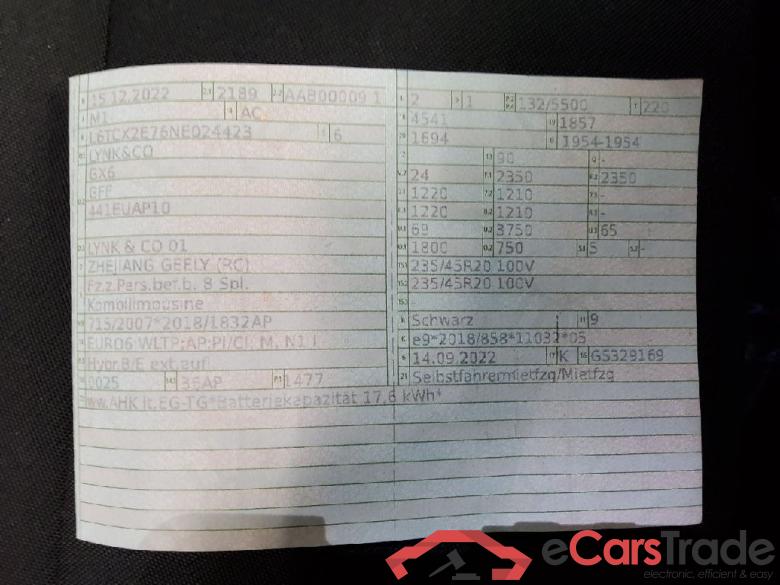 B 15.12.2022 2.1 2189 2.2 AAB00009 1
J M1 4 AC
E L6TCX2E76NE024423 3 6
LYNK&CO
GX6
GFF
441EUAP10
LYNK & CO 01
ZHEJIANG GEELY (RC)
Fz.z.Pers.bef.b. 8 Spl.
Kombilimousine
715/2007*2018/1832AP
EURO6 WLTP;AP;PI/CI, M, N1 I
Hybr.B/E ext.auf
0025 36AP 1477
ww.AHK lt.EG-TG*Batteriekapazität 17,6 kWh*
2 1 132/5500 T 220
4541 1857
1694 1954-1954
- 90 -
24 2350 2350
1220 1210 -
1220 1210 -
69 3750 65
1800 750 5 -
235/45R20 100V
235/45R20 100V
-
Schwarz 9
e9*2018/858*11032*05
14.09.2022 K GS329169
Selbstfahrermietfzg/Mietfzg
eCarsTrade
electronic, efficient & easy